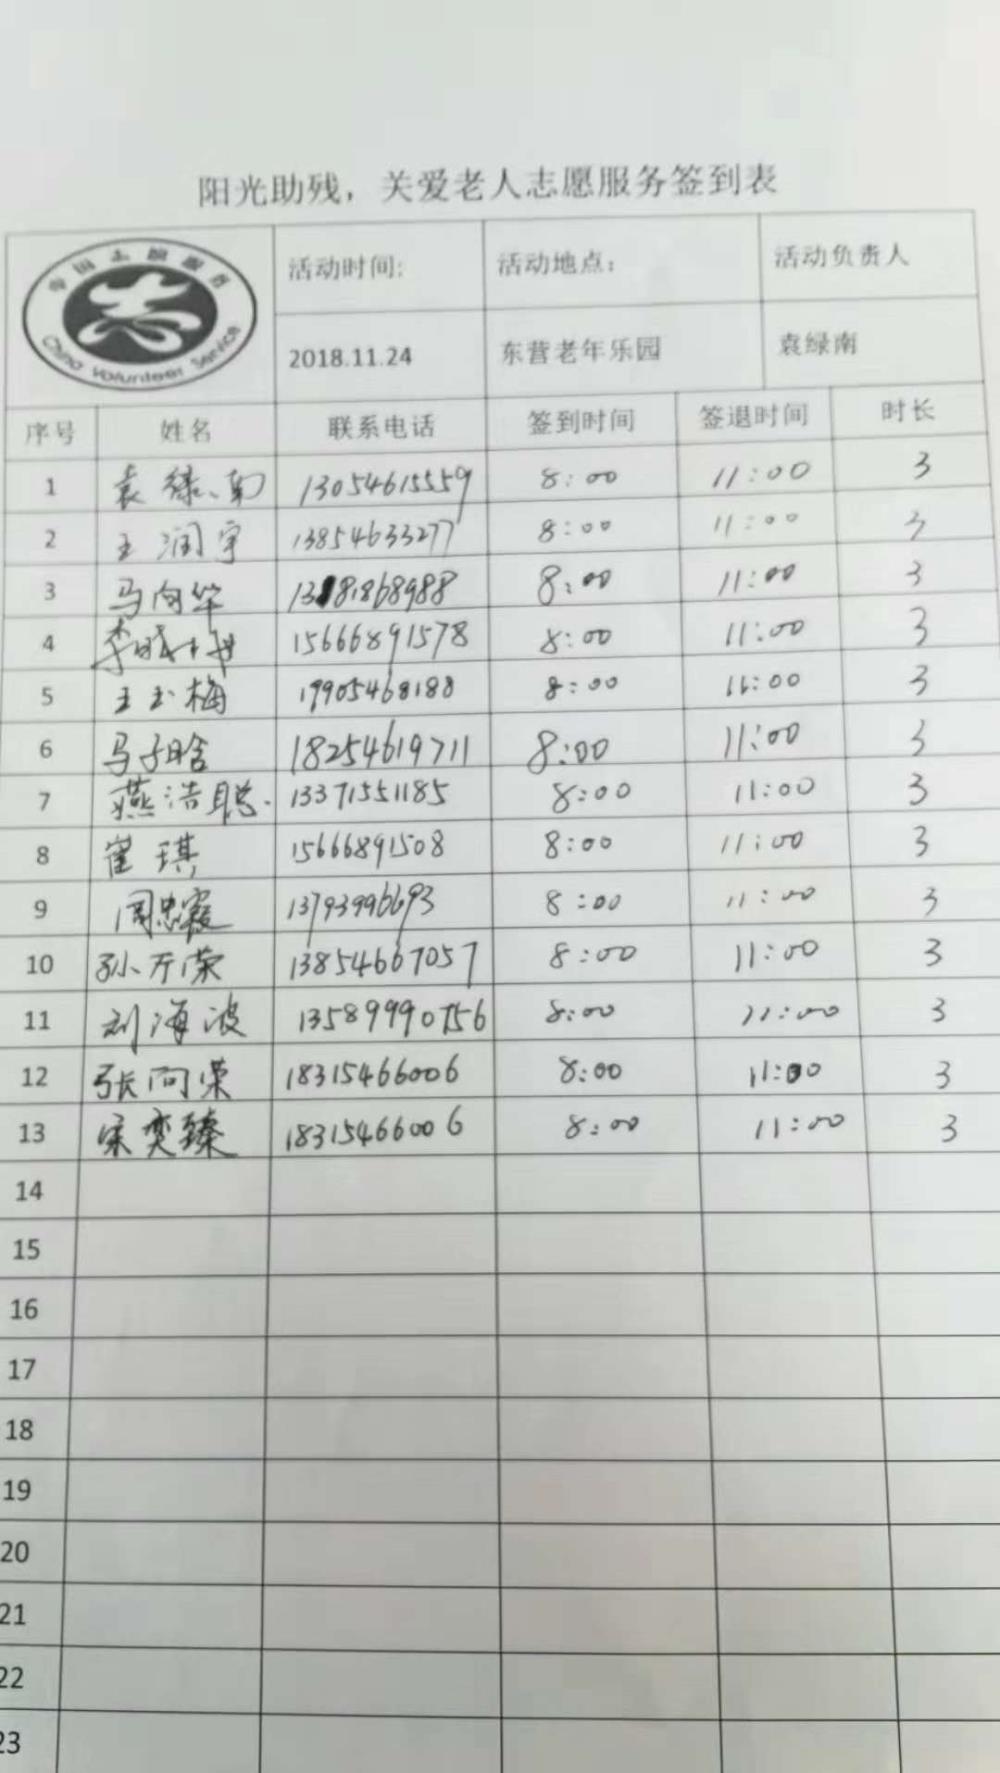 阳光助残，关爱老人志愿服务签到表
中国志愿服务
China Volunteer Service
活动时间: 活动地点： 活动负责人
2018.11.24 东营老年乐园 袁绿南
序号 姓名 联系电话 签到时间 签退时间 时长
1 袁绿南 13054615559 8:00 11:00 3
2 王润宇 13854633277 8:00 11:00 3
3 马向华 8:00 11:00 3
4 李晓梅 15666891578 8:00 11:00 3
5 王玉梅 19905468188 8:00 11:00 3
6 马子晗 18254619711 8:00 11:00 3
7 燕浩聪 13371551185 8:00 11:00 3
8 崔琪 15666891508 8:00 11:00 3
9 周忠霞 13793996693 8:00 11:00 3
10 孙万荣 13854667057 8:00 11:00 3
11 刘海波 13589990756 8:00 11:00 3
12 张向荣 18315466006 8:00 11:00 3
13 宋奕臻 18315466006 8:00 11:00 3
14
15
16
17
18
19
20
21
22
23